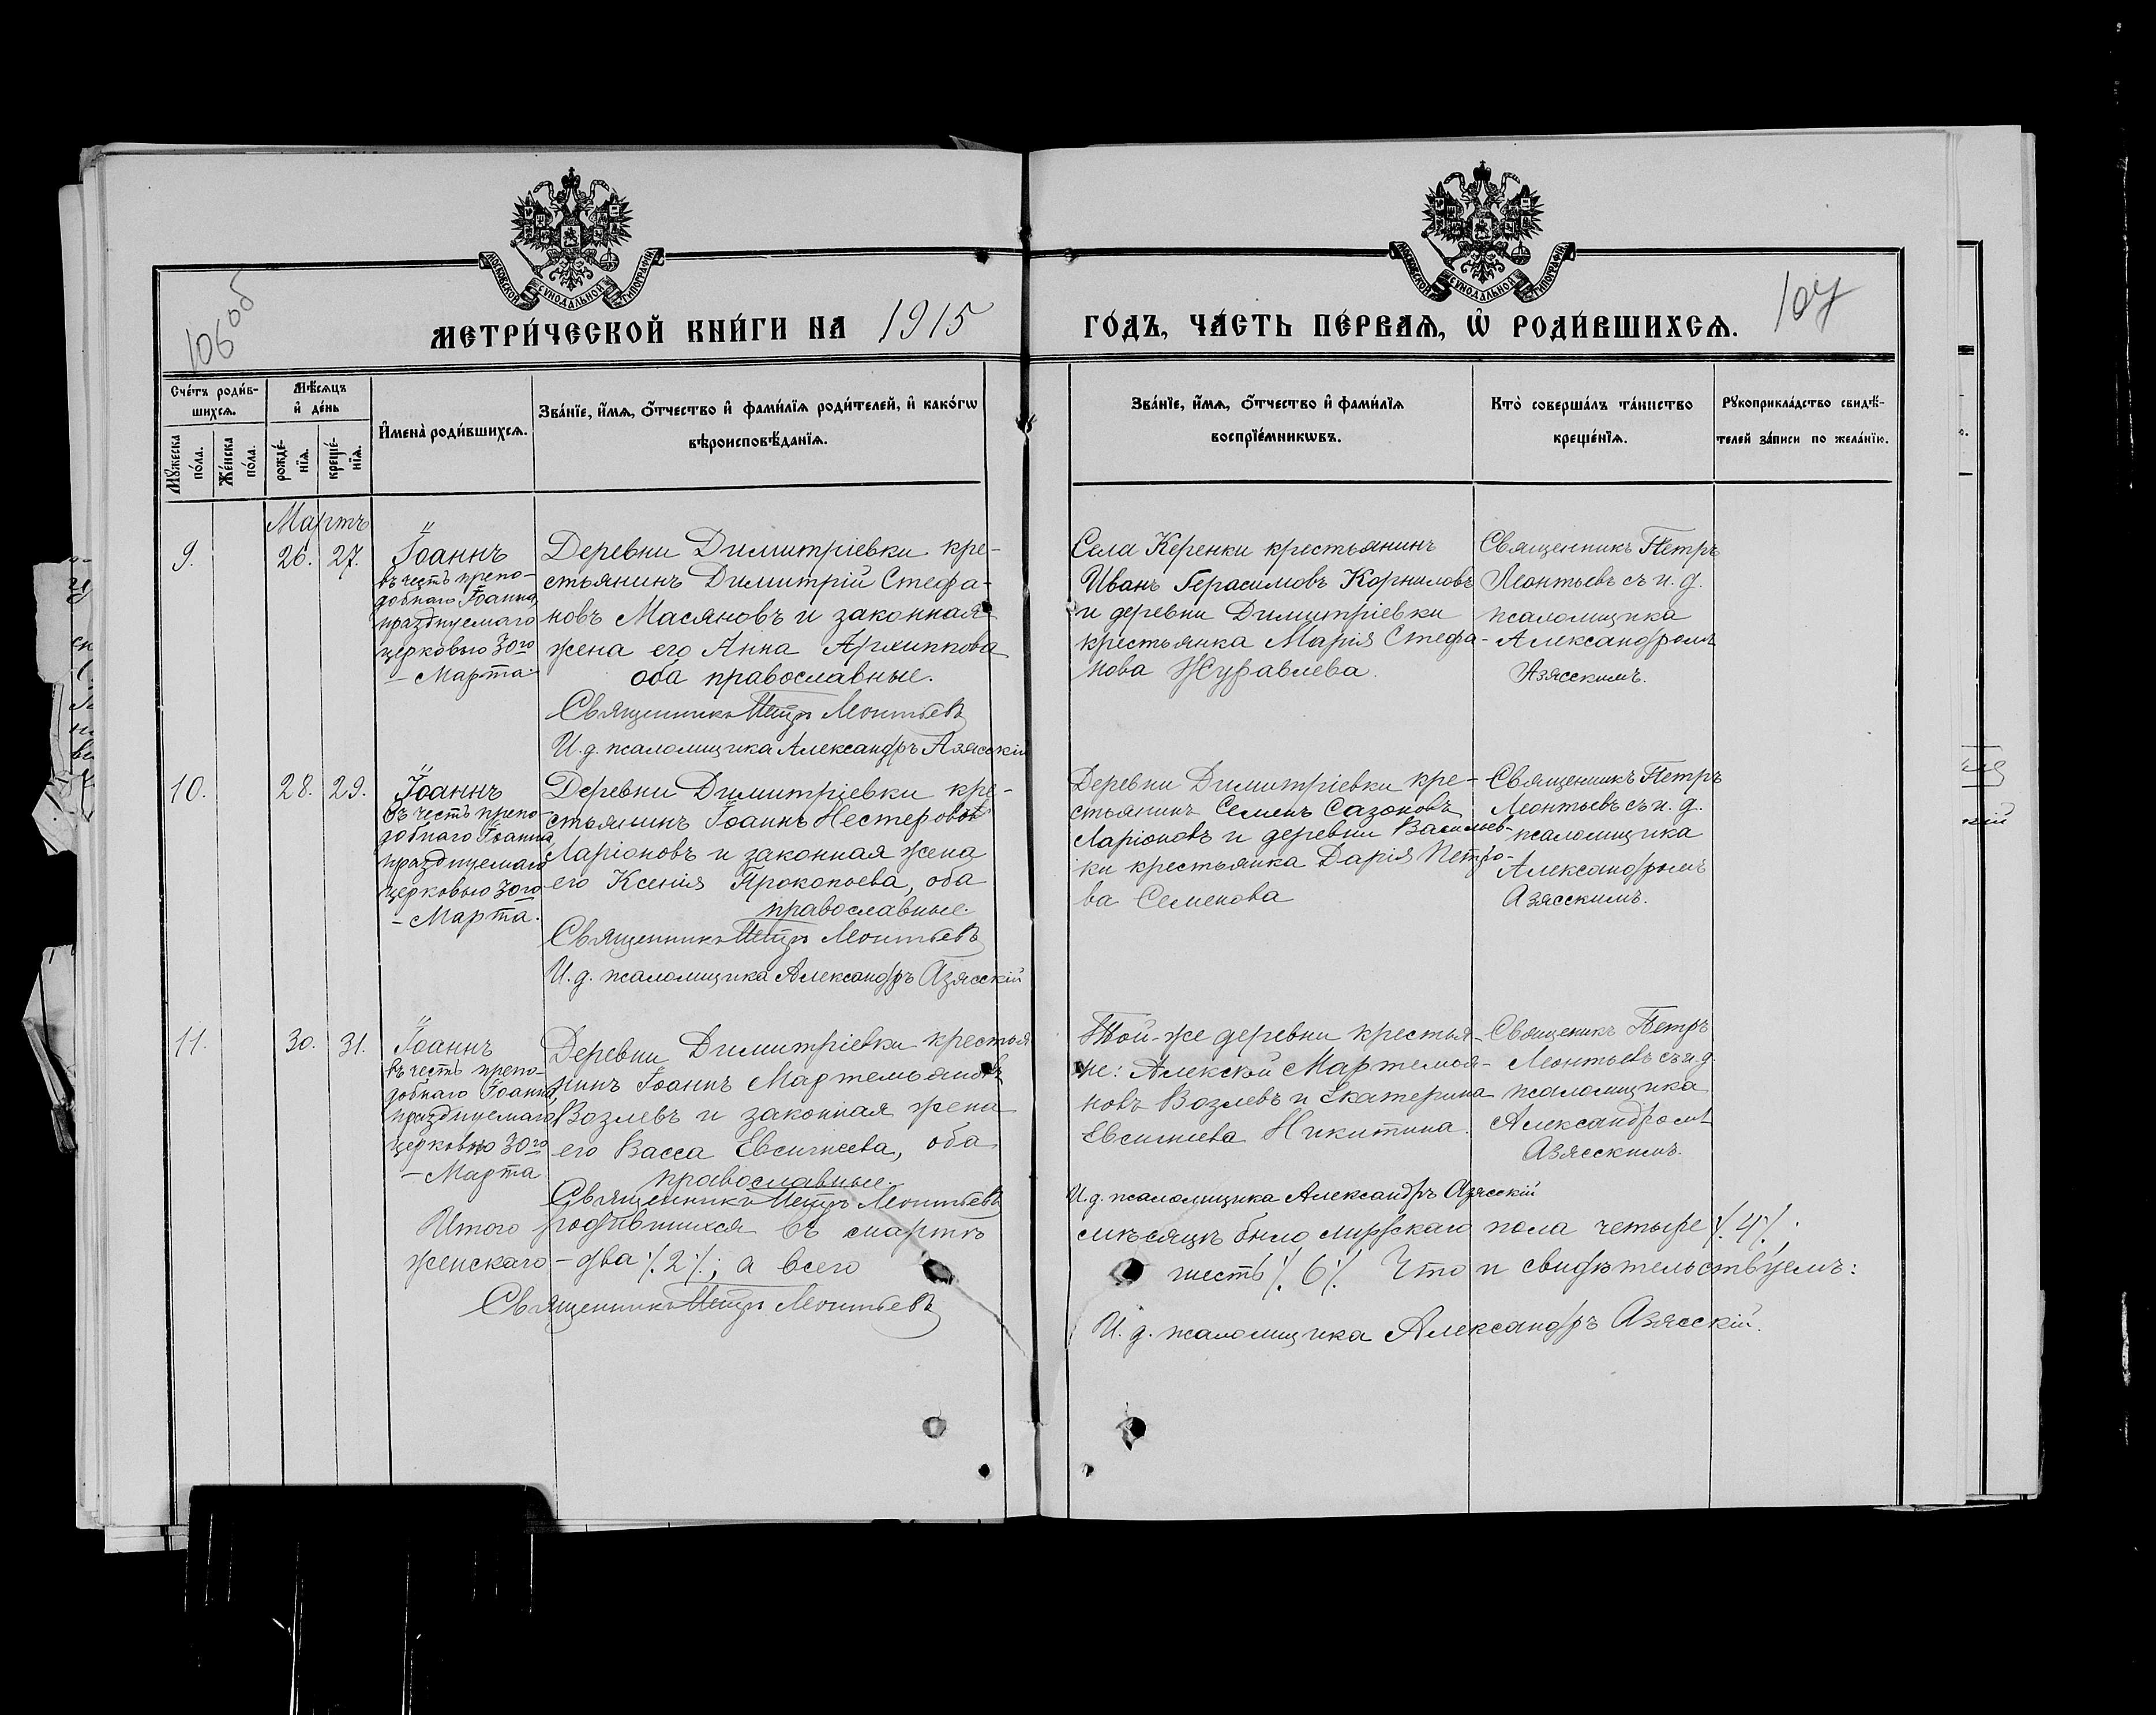 МОСКОВСКОЙ СѴНОДАЛЬНОЙ ТИПОГРАФІИ
МОСКОВСКОЙ СѴНОДАЛЬНОЙ ТИПОГРАФІИ
106об
МЕТРИ́ЧЕСКОЙ КНИ́ГИ НА 1915 ГО́ДЪ, ЧА́СТЬ ПЕ́РВАѦ, Ѡ҆ РОДИ́ВШИХСѦ.
107
Сче́тъ роди́в-
шихсѧ.
Мѣ́сѧцъ
и҆ де́нь
И҆мена̀ роди́вшихсѧ.
Зва́нїе, и҆́мѧ, ѻ҆́тчество и҆ фамѝлїѧ роди́телей, и҆ како́гѡ
вѣроисповѣ́данїѧ.
Зва́нїе, и҆́мѧ, ѻ҆́тчество и҆ фами́лїѧ
воспрїе́мникѡвъ.
Кто̀ соверша́лъ та́инство
креще́нїѧ.
Рꙋкоприкла́дство свидѣ́-
телей за́писи по жела́нїю.
Мꙋ́жеска
по́ла.
Же́нска
по́ла.
рожде́-
нїѧ.
креще́-
нїѧ.
Мартъ
9. 26. 27.
Іоаннъ
въ честь препо-
добнаго Іоанна,
празднуемаго
церковью 30го
- Марта.
Деревни Димитріевки кре-
стьянинъ Димитрій Стефа-
новъ Масяновъ и законная
жена его Анна Архиппова
оба православные.
Священникъ Петръ Леонтьевъ
И. д. псаломщика Александръ Азясскій
Села Керенки крестьянинъ
Иванъ Герасимовъ Корниловъ
и деревни Димитріевки
крестьянка Марія Стефа-
нова Журавлева.
Священникъ Петръ
Леонтьевъ съ и. д.
псаломщика
Александромъ
Азясскимъ.
10. 28. 29.
Іоаннъ
въ честь препо-
добнаго Іоанна
празднуемаго
церковью 30го
- Марта.
Деревни Димитріевки кре-
стьянинъ Іоаннъ Нестеровъ
Ларіоновъ и законная жена
его Ксенія Прокопьева, оба
православные.
Священникъ Петръ Леонтьевъ
И. д. псаломщика Александръ Азясскій
Деревни Димитріевки кре-
стьянинъ Семенъ Сазоновъ
Ларіоновъ и деревни Васильев-
ки крестьянка Дарія Петро-
ва Семенова
Священникъ Петръ
Леонтьевъ съ и. д.
псаломщика
Александромъ
Азясскимъ.
11. 30. 31.
Іоаннъ
въ честь препо-
добнаго Іоанна,
празднуемаго
церковью 30го
- Марта
Деревни Димитріевки крестья
нинъ Іоаннъ Мартемьяновъ
Возлевъ и законная жена
его Васса Евсигнеева, оба
православные.
Священникъ Петръ Леонтьевъ
Той-же деревни крестья-
не: Алексѣй Мартемья-
новъ Возлевъ и Екатерина
Евсигнеева Никитина.
Священикъ Петръ
Леонтьевъ съ и. д.
псаломщика
Александромъ
Азясскимъ.
И. д. псаломщика Александръ Азясскій
Итого родившихся въ мартѣ мѣсяцѣ было мужскаго пола четыре ⁒4⁒;
женскаго - два ⁒2⁒; а всего шесть ⁒6⁒. Что и свидѣтельствуемъ:
Священникъ Петръ Леонтьевъ
И. д. псаломщика Александръ Азясскій.